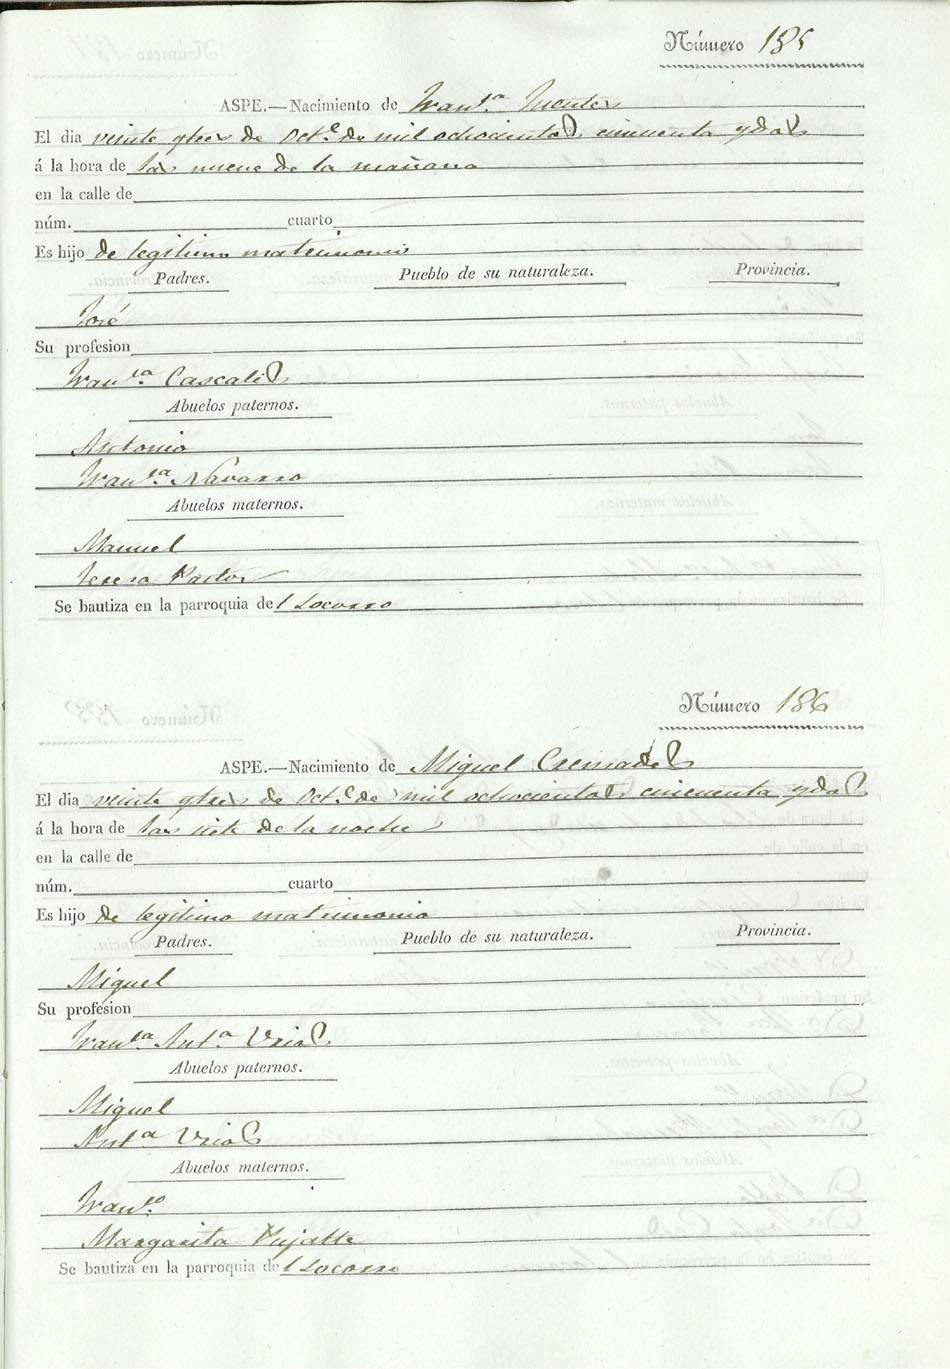 Número 185
ASPE.—Nacimiento de Fran.ca
El dia veinte y tres de Oct.e de mil ochocientos cincuenta y dos
á la hora de las nueve de la mañana
en la calle de
núm. cuarto
Es hijo de legitimo matrimonio
Padres. Pueblo de su naturaleza. Provincia.
José
Su profesion
Fran.ca Cascales
Abuelos paternos.
Antonio
Fran.ca Navarro
Abuelos maternos.
Manuel
Teresa Pastor
Se bautiza en la parroquia del Socorro
Número 186
ASPE.—Nacimiento de Miguel Cremades
El dia veinte y tres de Oct.e de mil ochocientos cincuenta y dos
á la hora de las siete de la noche
en la calle de
núm. cuarto
Es hijo de legitimo matrimonio
Padres. Pueblo de su naturaleza. Provincia.
Miguel
Su profesion
Fran.ca Ant.a
Abuelos paternos.
Miguel
Ant.a
Abuelos maternos.
Fran.co
Margarita Pujalte
Se bautiza en la parroquia del Socorro